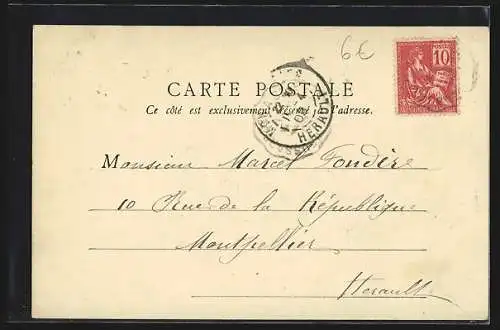 6€
POSTES
10
CARTE POSTALE
Ce côté est exclusivement réservé à l'adresse.
HERAULT
Monsieur Marcel Fondère
10 Rue de la République
Montpellier
Herault